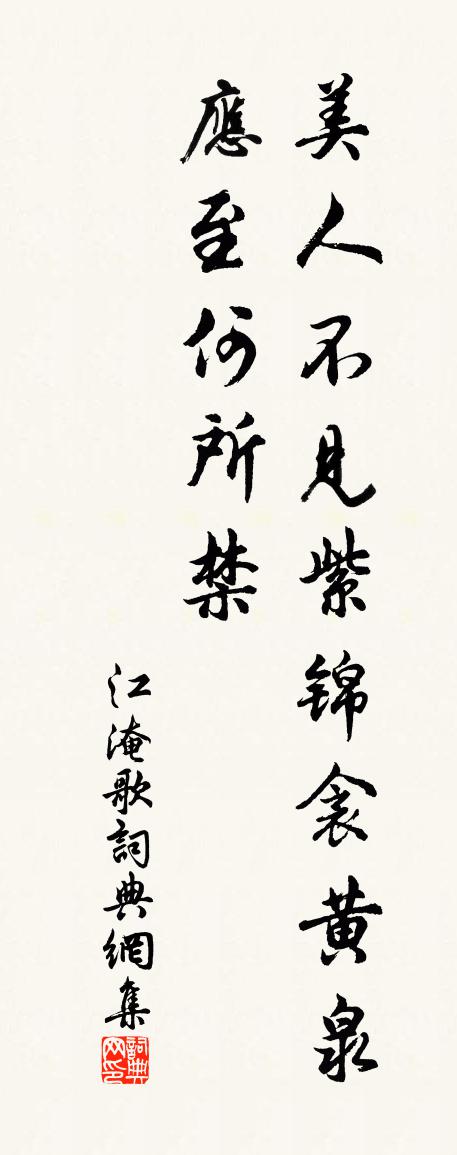 美人不見紫錦衾黄泉
應至何所禁
江淹歌詞典網集
詞典网印